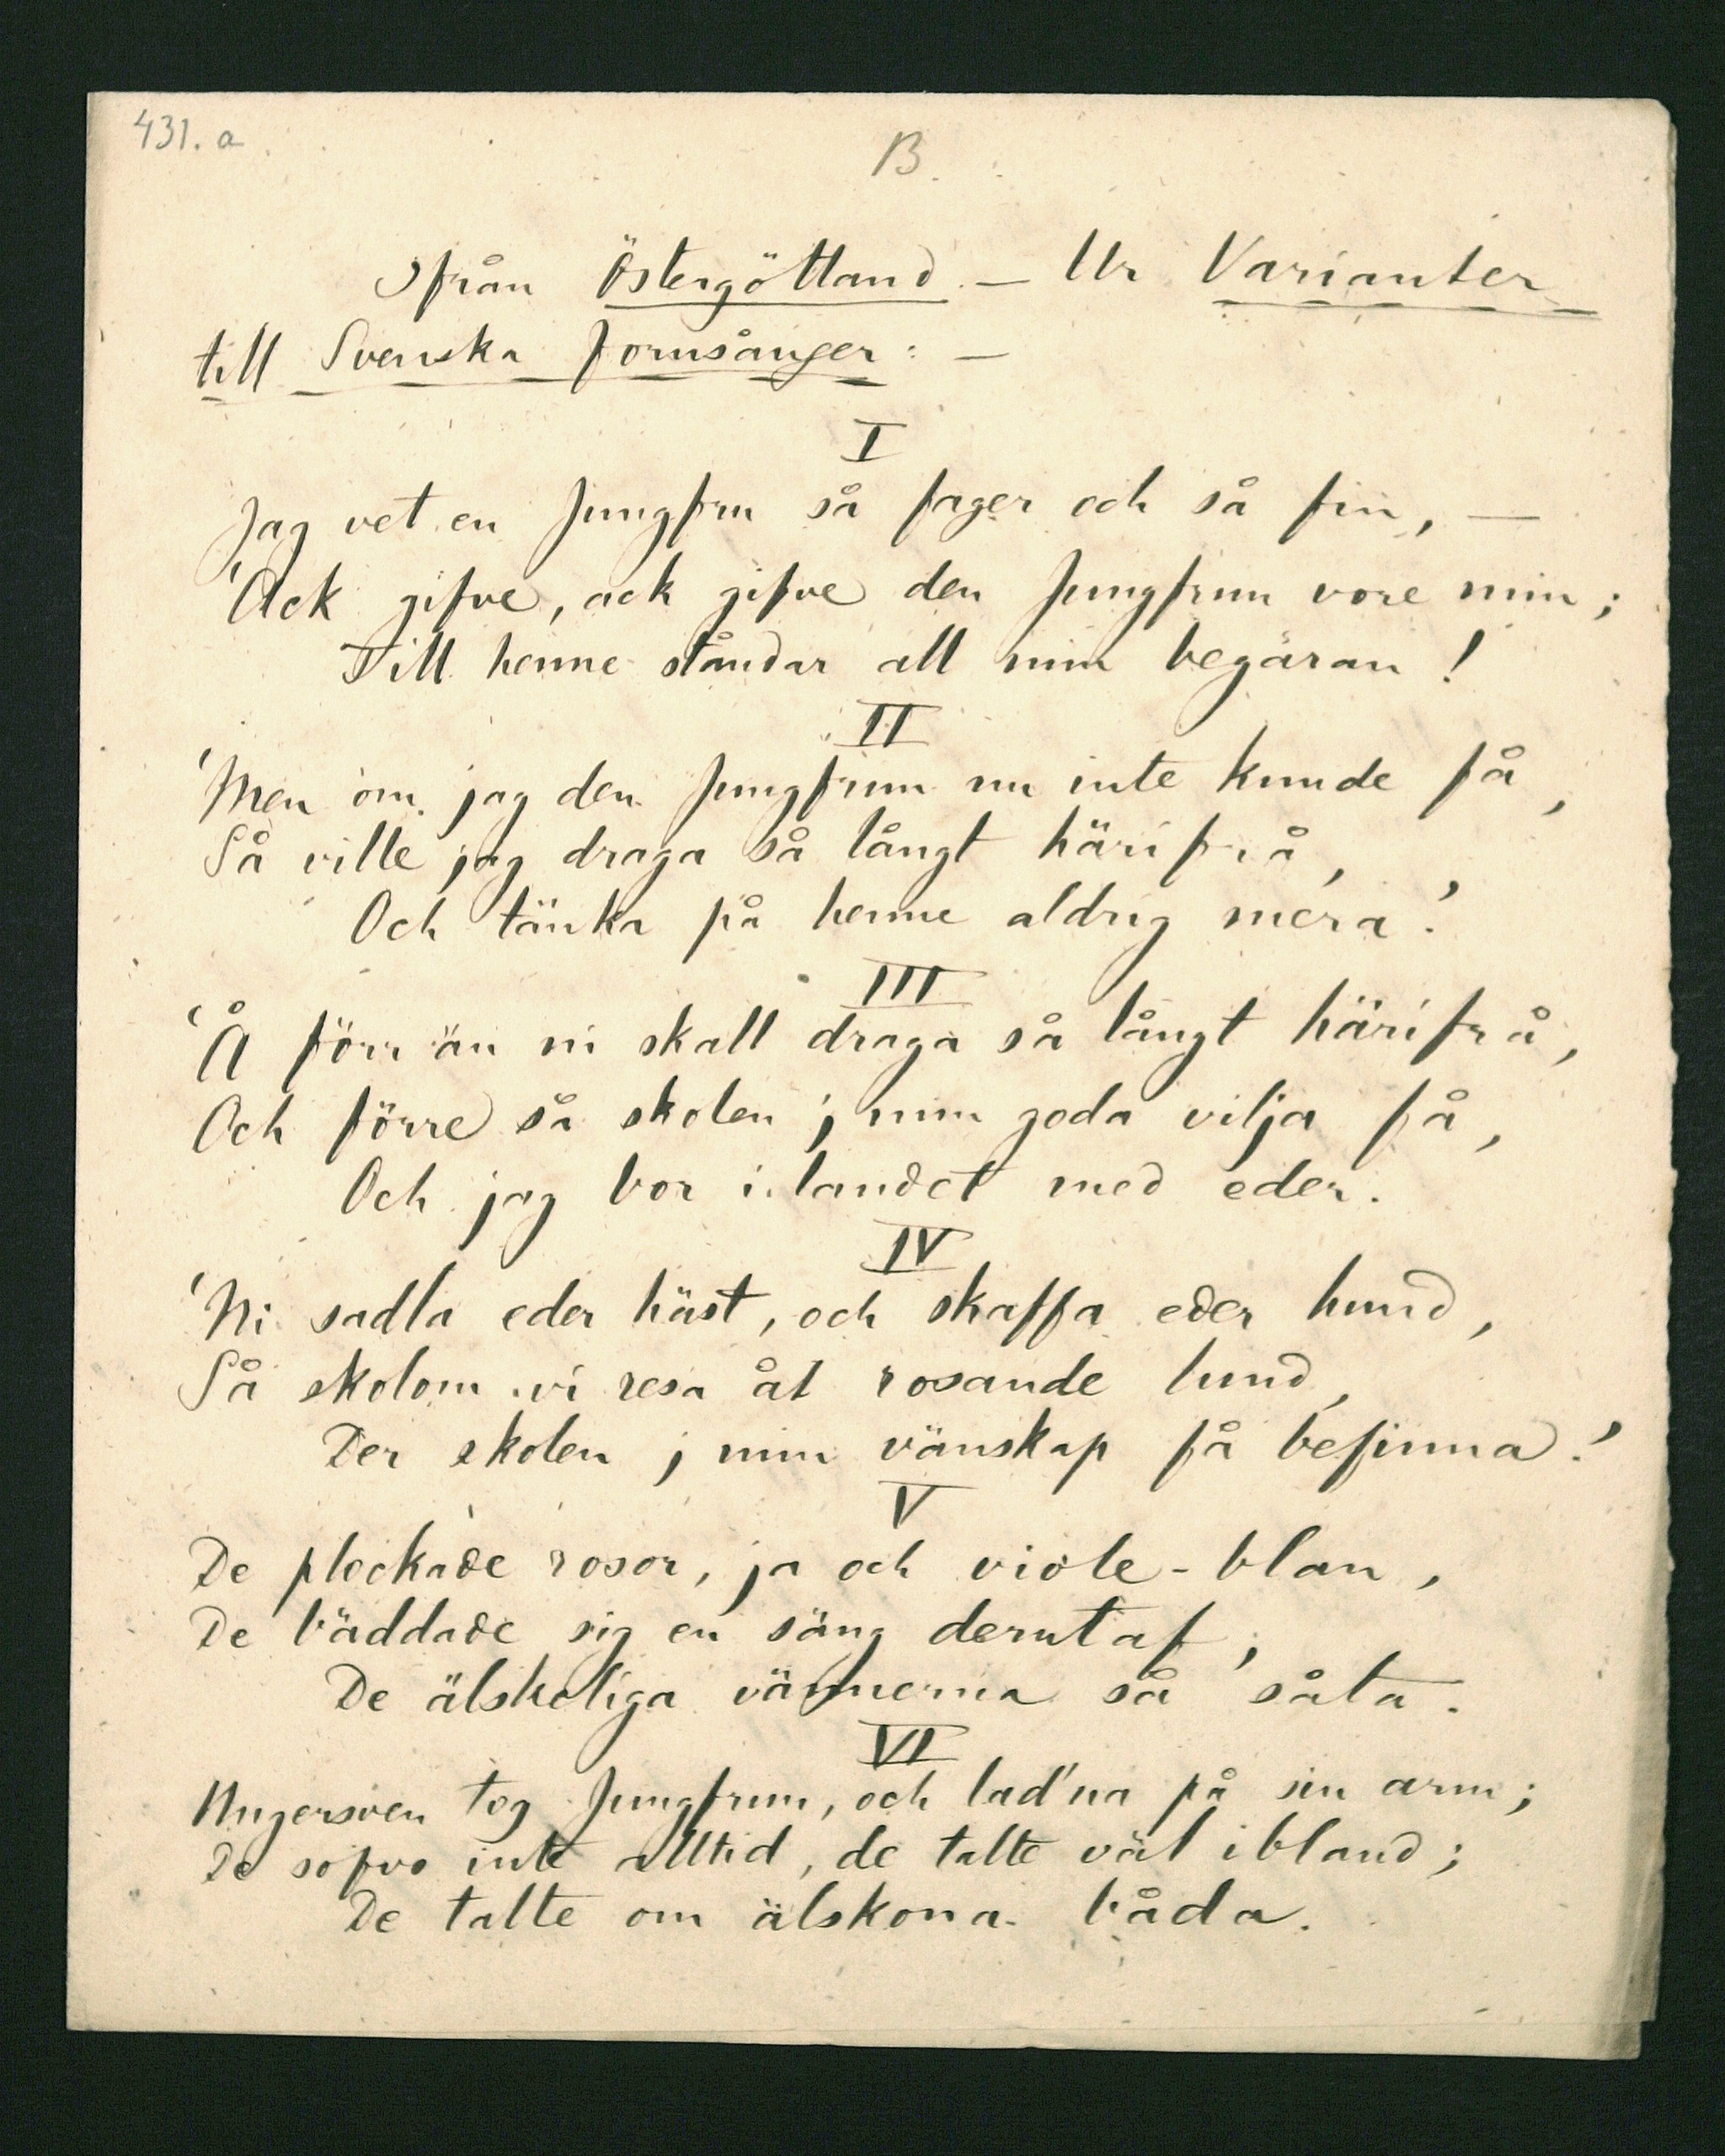 431. a
B.
Ifrån Östergöttland. – Ur Varianter
till Svenska Fornsånger: –
I
Jag vet en Jungfru så fager och så fin, –
'Ack gifve, ack gifve den Jungfrun vore min;
Till henne ståndar all min begäran!
II
'Men om jag den Jungfrun nu inte kunde få,
Så ville jag draga så långt härifrå,
Och tänka på henne aldrig mera.'
III
'Å förr än ni skall draga så långt härifrå,
Och förre så skolen j min goda vilja få,
Och jag bor i landet med eder.
IV
'Ni sadla eder häst, och skaffa eder hund,
Så skolom vi resa åt rosande lund,
Der skolen j min vänskap få befinna.'
V
De plockade rosor, ja och viole-blan,
De bäddade sig en säng derutaf,
De älskeliga vännerna så såta.
VI
Ungersven tog Jungfrun, och lad'na på sin arm;
De sofvo inte alltid, de talte väl ibland;
De talte om älskona båda.